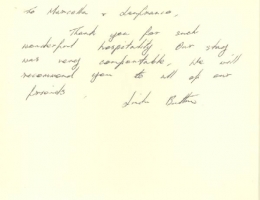 To Marcella + Lanfranco,
Thank you for such
wonderful hospitality. Our stay
was very comfortable. We will
recommend you to all of our
friends
Linda